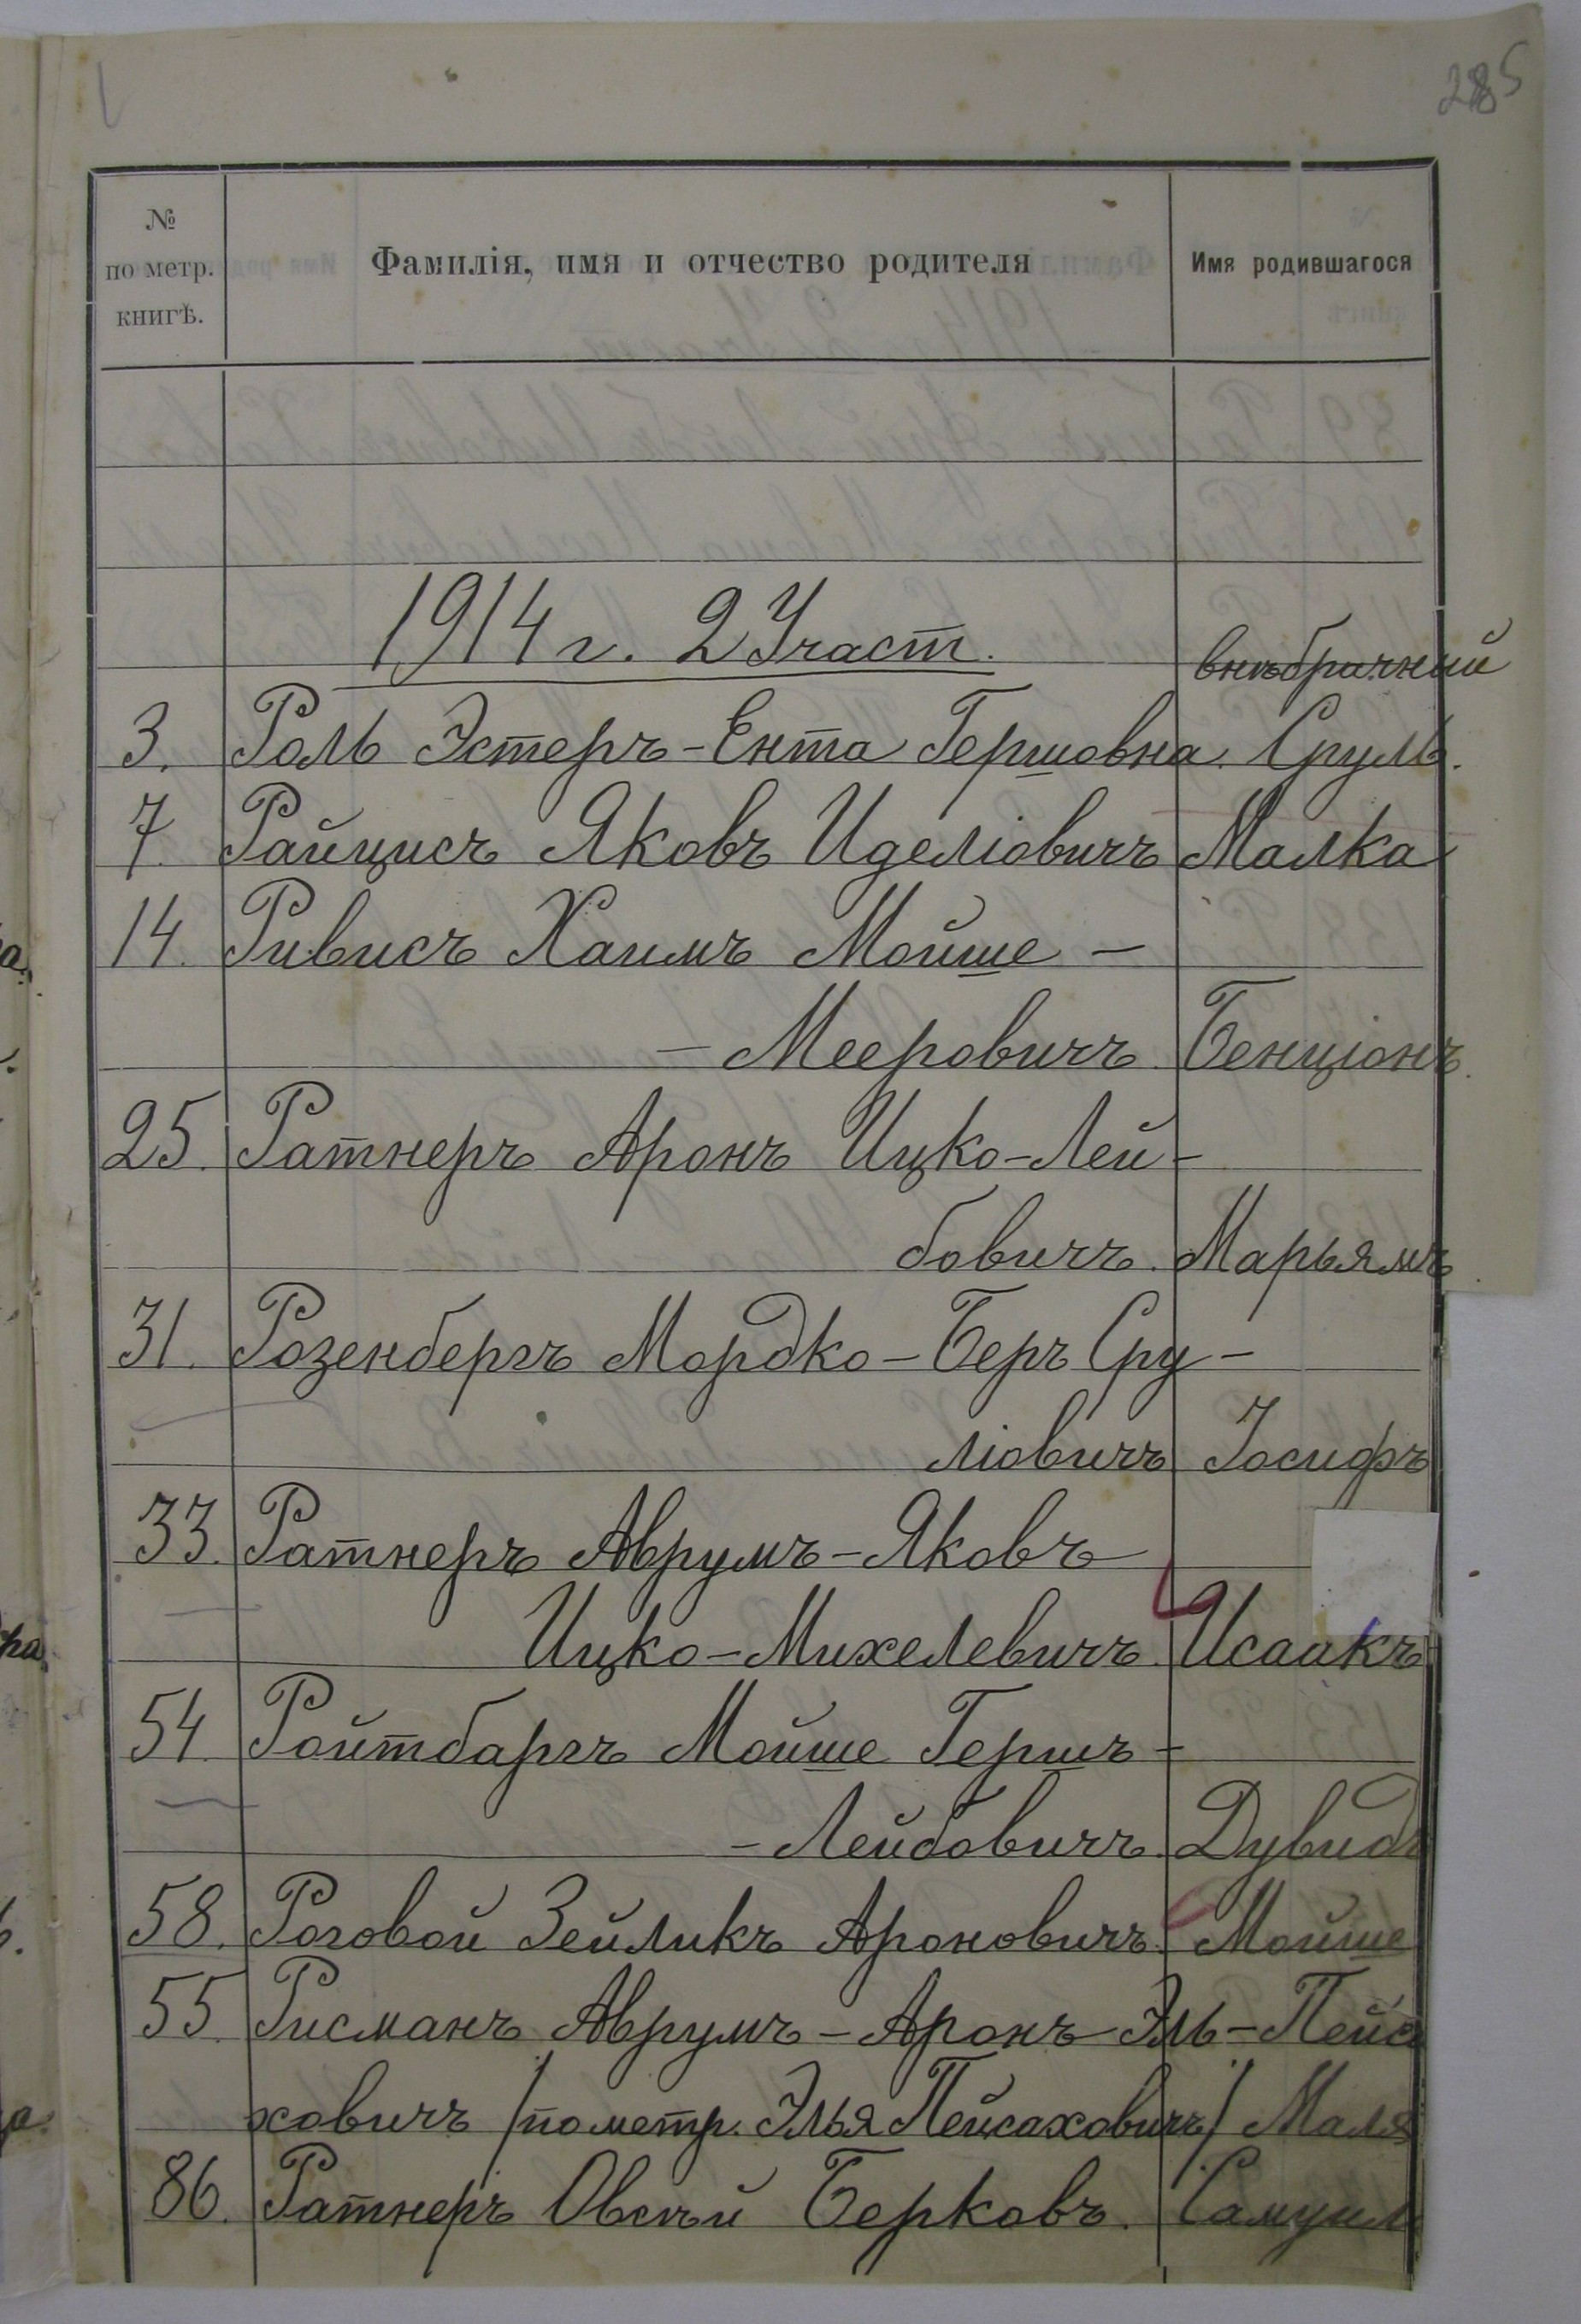 285
№ по метр. книгѣ.
Фамилія, имя и отчество родителя
Имя родившагося
1914 г. 2 Участ.
внѣбрачный
3. Роль Эстеръ-Ента Гершовна. Сруль.
7. Райцисъ Яковъ Иделіовичъ Малка
14. Ривисъ Хаимъ Мойше -
- Мееровичъ. Бенціонъ.
25. Ратнеръ Аронъ Ицко-Лей-
бовичъ. Марьямъ
31. Розенбергъ Мордко-Беръ Сру-
ліовичъ Іосифъ
33. Ратнеръ Аврумъ-Яковъ
Ицко-Михелевичъ. Исаакъ
54. Ройтбаргъ Мойше Гершъ-
-Лейбовичъ. Дувидъ
58. Роговой Зейликъ Ароновичъ. Мойше
55. Рисманъ Аврумъ-Аронъ Эль-Пейса
ховичъ /по метр. Элья Пейсаховичъ/ Маля
86. Ратнеръ Овсѣй Берковъ. Самуил